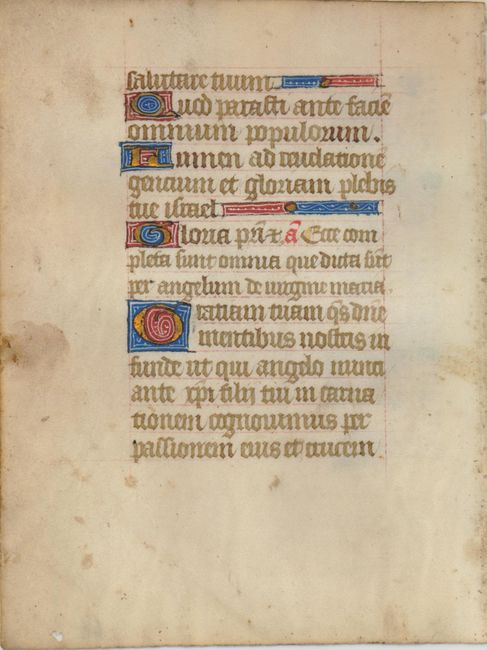 salutare tuum
Quod parasti ante faciē
omnium populorum.
Lumen ad reuelationē
gencium et gloriam plebis
tue israel
Gloria pri. a Ecce com
pleta sunt omnia que dicta sūt
per angelum de uirgine maria.
Gratiam tuam qs dne
mentibus nostris in
funde ut qui angelo nunci
ante xpi filij tui in carna
tionem cognouimus per
passionem eius et crucem